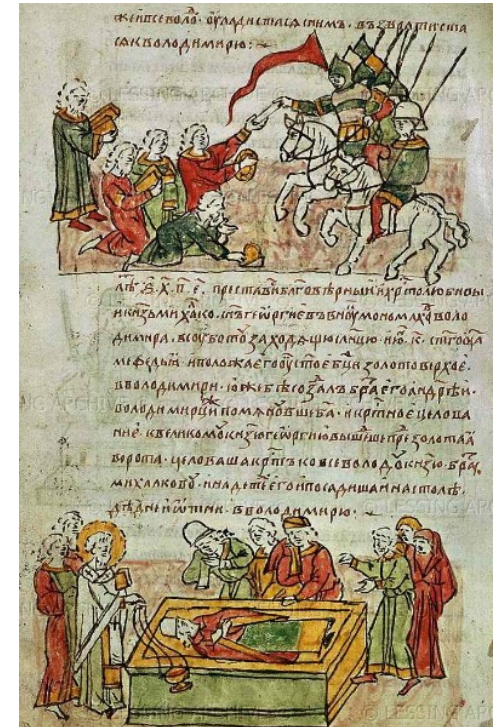 жеивсеволо. оуладистасѧсними. възвратиста
сѧкволодимирю:~
лѣ. ҂ѕ.х.п.е. преставиблаговѣрныиихртолюбивы
икнѧзьмихалко. снъгеоргиевъвноукмономахволо
димира. всоуботозаходѧщюслнцю. ию. к. стгоѡца
мефедьи. иположиегооустоебцизолотоверхое.
вволодимири. южебѣсозалъбраегоандрѣи.
володимирциипомѧновшеба. икртноецелова
ние. квеликомоукнзюгеѡргиювышешепрезолотаѧ
ворота. целовашакртъковсеволодоукнзю. бра.
михалковоу. инадетеегоипосадишаинастолѣ.
дѣднеиѡтни. вволодимирю.
© LESSING ARCHIVE